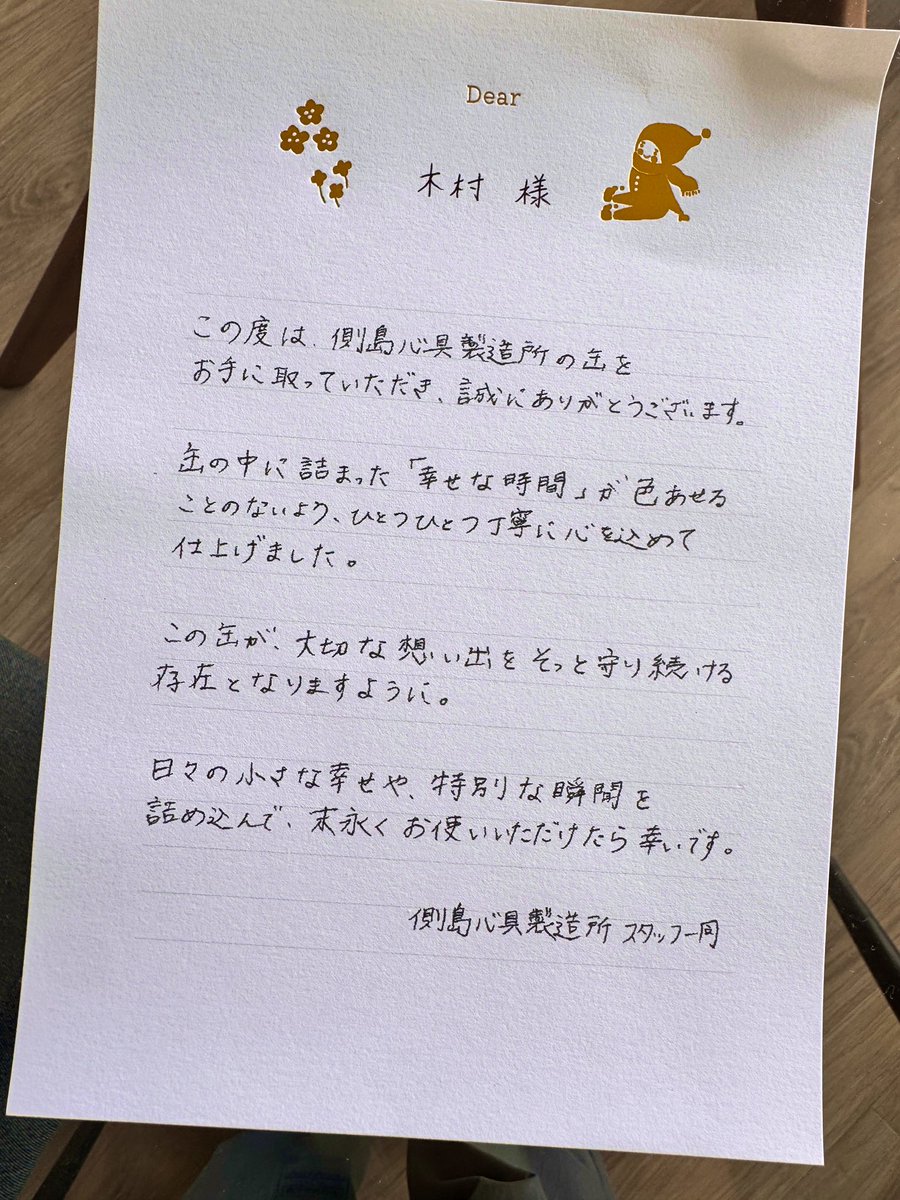 Dear
木村 様
この度は、側島心具製造所の缶を
お手に取っていただき、誠にありがとうございます。
缶の中に詰まった「幸せな時間」が色あせる
ことのないよう、ひとつひとつ丁寧に心を込めて
仕上げました。
この缶が、大切な想い出をそっと守り続ける
存在となりますように。
日々の小さな幸せや、特別な瞬間を
詰め込んで、末永くお使いいただけたら幸いです。
側島心具製造所 スタッフ一同